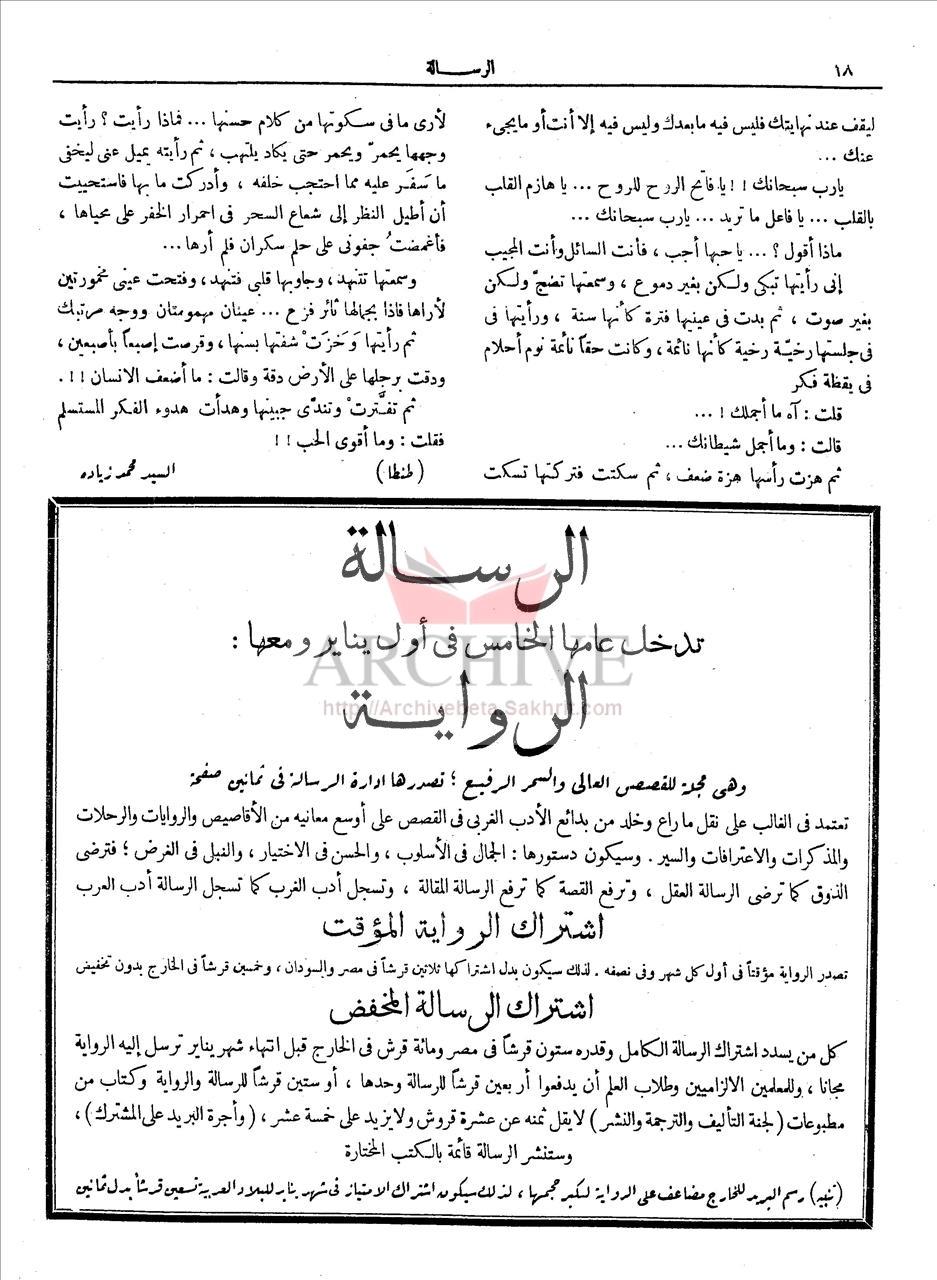 ١٨
الرسالة
ليقف عند نهايتك فليس فيه ما بعدك وليس فيه إلا أنت أو ما يجيء
عنك ...
يارب سبحانك ! ! يا فاتح الروح للروح ... يا هازم القلب
بالقلب ... يا فاعل ما تريد ... يارب سبحانك ...
ماذا أقول ؟ ... يا حبها أجب ، فأنت السائل وأنت المجيب
إنى رأيتها تبكى ولكن بغير دموع ، وسمعتها تضجّ ولكن
بغير صوت ، ثم بدت فى عينيها فترة كأنها سنة ، ورأيتها فى
فى جلستها رخيّة رخية كأنها نائمة ، وكانت حقاً نائمة نوم أحلام
فى يقظة فكر
قلت : آه ما أجملك ! ...
قالت : وما أجمل شيطانك ...
ثم هزت رأسها هزة ضعف ، ثم سكتت فتركتها تسكت
لأرى ما فى سكوتها من كلام حسنها ... فماذا رأيت ؟ رأيت
وجهها يحمرّ ويحمر حتى يكاد يلتهب ، ثم رأيته يميل عنى ليخفى
ما سَفَر عليه مما احتجب خلفه ، وأدركت ما بها فاستحييت
أن أطيل النظر إلى شعاع السحر فى احمرار الخفر على محياها ،
فأغمضتُ جفونى على حلم سكران فلم أرها ...
وسمعتها تتنهد ، وجاوبها قلبى فتنهد ، وفتحت عينى مخمورتين
لأراها فاذا بجمالها ثائر فزع ... عينان مهمومتان ووجه مرتبك
ثم رأيتها وَخَزَتْ شفتها بسنها ، وقرصت إصبعاً بأصبعين ،
ودقت برجلها على الأرض دقة وقالت : ما أضعف الانسان ! ! .
ثم تفتَّرتْ وتندّى جبينها وهدأت هدوء الفكر المستسلم
فقلت : وما أقوى الحب ! !
(طنطا) السيد محمد زياده
الرسالة
تدخل عامها الخامس فى أول يناير ومعها :
الرواية
وهى مجلة للقصص العالى والسمر الرفيع ؛ تصدرها ادارة الرسالة فى ثمانين صفحة
تعتمد فى الغالب على نقل ما راع وخلد من بدائع الأدب الغربى فى القصص على أوسع معانيه من الأقاصيص والروايات والرحلات
والمذكرات والاعترافات والسير . وسيكون دستورها : الجمال فى الأسلوب ، والحسن فى الاختيار ، والنبل فى الغرض ؛ فترضى
الذوق كما ترضى الرسالة العقل ، وترفع القصة كما ترفع الرسالة المقالة ، وتسجل أدب الغرب كما تسجل الرسالة أدب العرب
اشتراك الرواية المؤقت
تصدر الرواية مؤقتاً فى أول كل شهر وفى نصفه . لذلك سيكون بدل اشتراكها ثلاثين قرشاً فى مصر والسودان ، وخمسين قرشاً فى الخارج بدون تخفيض
اشتراك الرسالة المخفض
كل من يسدد اشتراك الرسالة الكامل وقدره ستون قرشاً فى مصر ومائة قرش فى الخارج قبل انتهاء شهر يناير ترسل إليه الرواية
مجانا ، وللمعلمين الالزاميين وطلاب العلم أن يدفعوا أربعين قرشاً للرسالة وحدها ، أو ستين قرشاً للرسالة والرواية وكتاب من
مطبوعات (لجنة التأليف والترجمة والنشر) لا يقل ثمنه عن عشرة قروش ولا يزيد على خمسة عشر ، (وأجرة البريد على المشترك) ،
وستنشر الرسالة قائمة بالكتب المختارة
(تنبيه) رسم البريد للخارج مضاعف على الرواية لكبر حجمها ، لذلك سيكون اشتراك الامتياز فى شهر يناير للبلاد العربية تسعين قرشاً بدل ثمانين
ARCHIVE
http://Archivebeta.Sakhrit.com